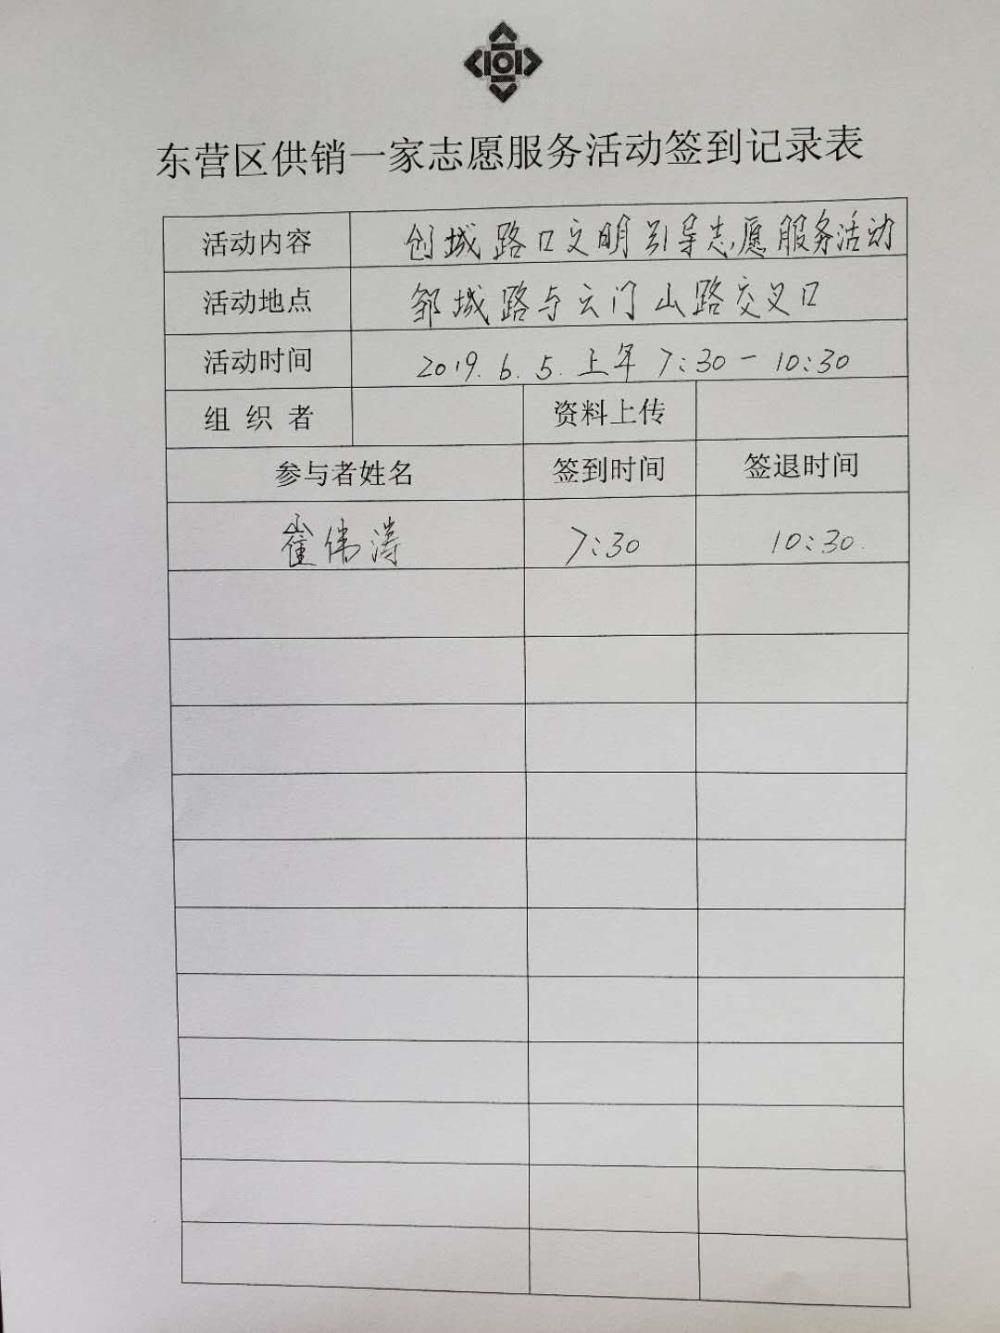 东营区供销一家志愿服务活动签到记录表
活动内容 创城路口文明引导志愿服务活动
活动地点 邹城路与云门山路交叉口
活动时间 2019.6.5.上午 7:30-10:30
组织者 资料上传
参与者姓名 签到时间 签退时间
崔伟涛 7:30 10:30.